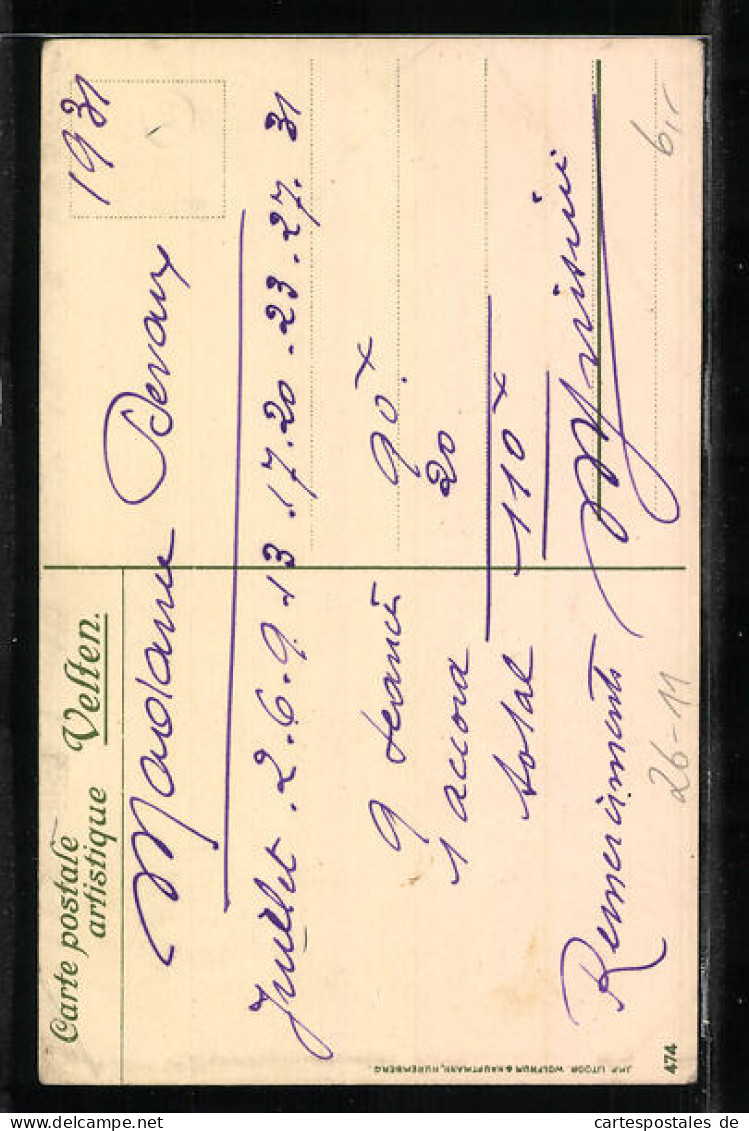 Carte postale
artistique
Velten.
1931
Madame Devaux
Juillet . 2 . 6 . 9 . 13 . 17 . 20 . 23 . 27 . 31
9 seances 90 x
1 accord 20
total 110 x
Remerciments
26-11
6,-
474
IMP. LITOGR WOLFRUM & HAUPTMANN, NUREMBERG.
cartespostales de